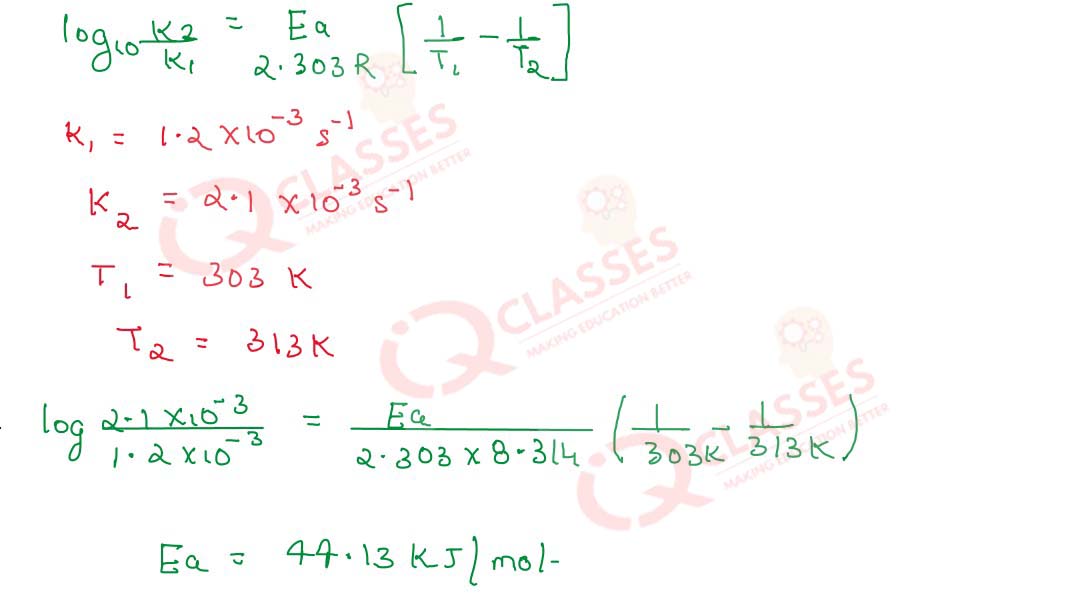 log₁₀ K2/K₁ = Ea/2.303R [1/T₁ - 1/T₂]
K₁ = 1.2 × 10⁻³ s⁻¹
K₂ = 2.1 × 10⁻³ s⁻¹
T₁ = 303 K
T₂ = 313 K
log 2.1 × 10⁻³/1.2 × 10⁻³ = Ea/2.303 × 8.314 (1/303K - 1/313K)
Ea = 44.13 KJ/mol-
iQ CLASSES
MAKING EDUCATION BETTER
iQ CLASSES
MAKING EDUCATION BETTER
iQ CLASSES
MAKING EDUCATION BETTER